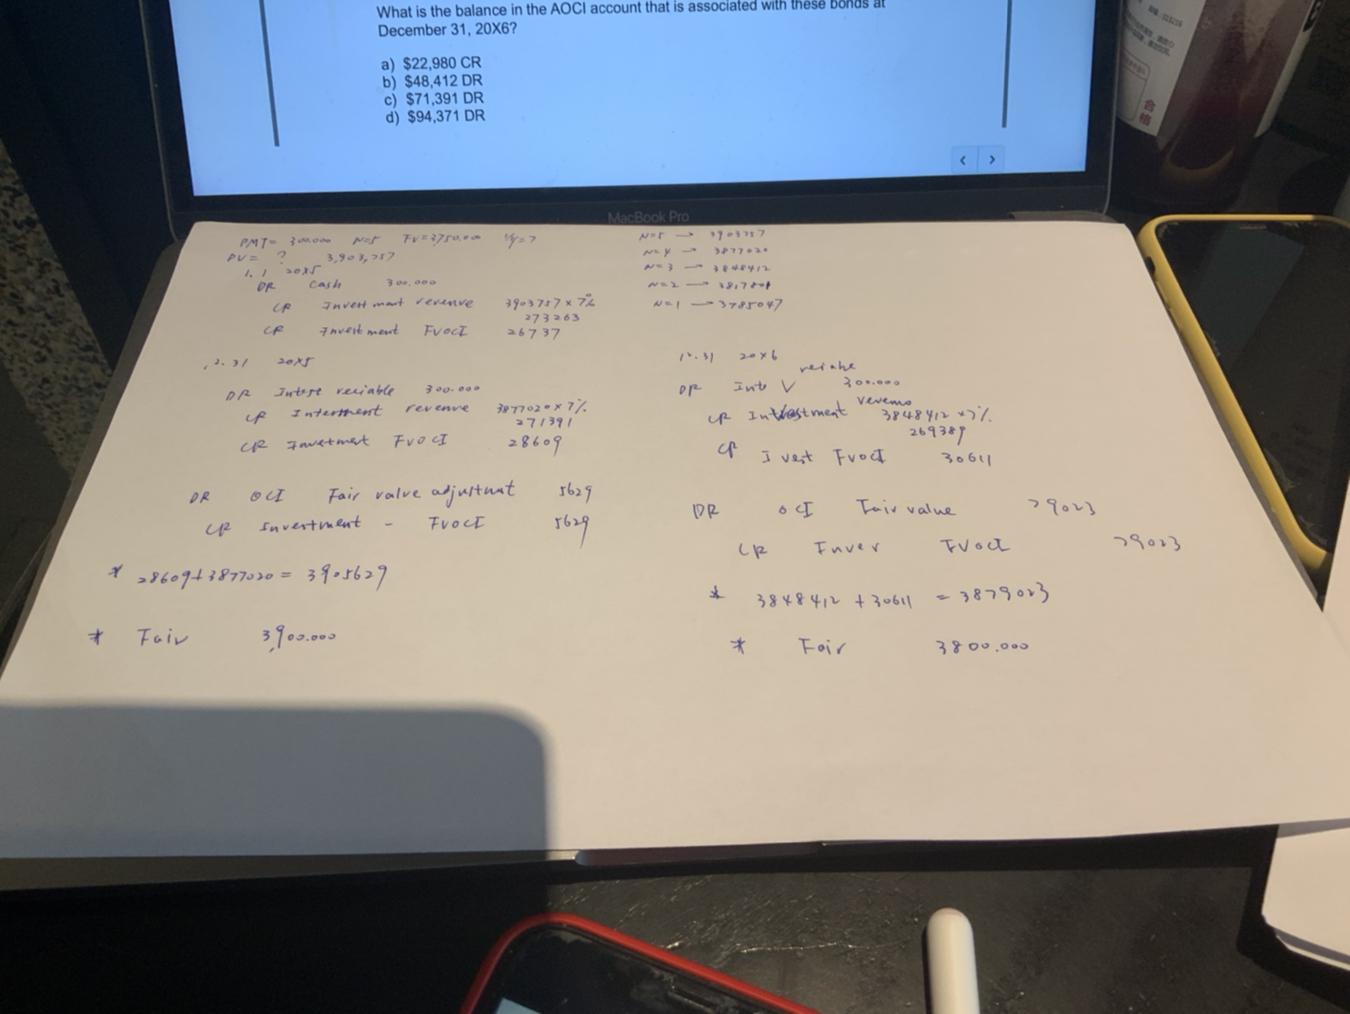 What is the balance in the AOCI account that is associated with these bonds at
December 31, 20X6?
a) $22,980 CR
b) $48,412 DR
c) $71,391 DR
d) $94,371 DR
< >
MacBook Pro
合格
PMT= 300.000 N=5 FV=3750.000 I/Y=7
PV= ? 3,903,757
1. 1 20X5
DR Cash 300,000
CR Investment revenue 3903757 x 7%
273263
CR Investment FVOCI 26737
N=5 → 3903757
N=4 → 3877020
N=3 → 3848412
N=2 → 3817801
N=1 → 3785047
12.31 20X5
DR 300.000
CR revenue 3877020 x 7%
271391
CR FVOCI 28609
DR OCI Fair value adjustment 5629
CR Investment - FVOCI 5629
* 28609 + 3877020 = 3905629
* Fair 3,900.000
12.31 20X6
DR 300.000
CR 3848412 x 7%
269389
CR FVOCI 30611
DR OCI Fair value 79023
CR Inver FVOCI 79023
* 3848412 + 30611 = 3879023
* Fair 3800.000